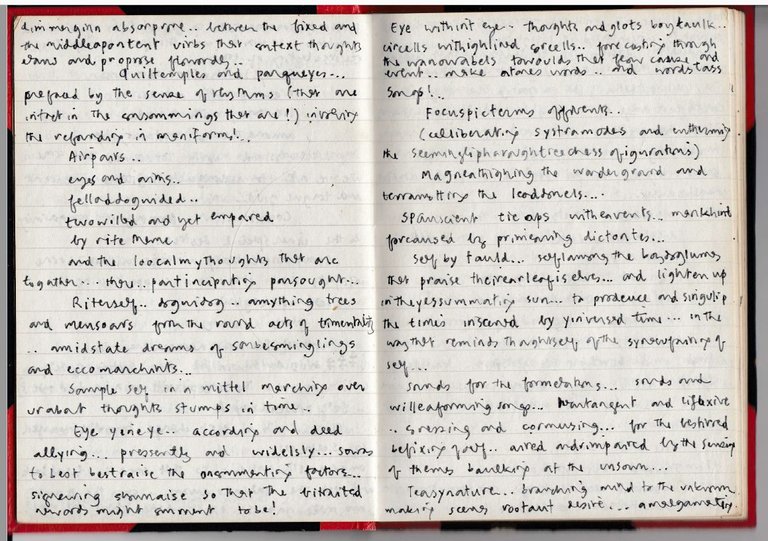 absorprone.. between the fixed and
the middleapontent virbs that context thoughts
and proprose
Quiltemples and parqueyes...
prefaced by the sense of rhythms (that are
intact in the consommings that are!) involving
the refounding in maniforms!..
Airpairs..
eyes and aims..
felladdoguided..
twowilled and yet empared
by rite meme
and the loocalmythoughts that are
together... there.. participation parsought...
Riterself.. doguidog.. amything trees
and mensoars from the round acts of
.. amidstate dreams of sonbesminglings
and eccomarchants...
Sample self in a mittel marching over
urabat thoughts stumps in time..
Eye yeneye.. according and deed
allying... pressertly and widelsly... sours
to best bestraise the onsommenting factors...
signewing showraise so that the bitraited
newords might omment to be!
Eye withint eye.. thoughts and glots boytaulk..
circells withighlined forcells.. forecasting through
the towoulds that flow cause and
event.. make atones words.. and words tass
songs!..
Focuspicterms offvents..
(celliberating systramodes and
the figurations)
Magneathighing the wordergrownd and
terramotting the leaddonels....
Spanscient tie ops witheavents...
forcaused by primeaning dictortes...
Self by fauld... selflamong the
that praise theirearleafiselves... and lighten up
intheyessummating sun... to prodeuce and singulip
the times inscened by yiniversed time... in the
way that reminds thoughtself of the of
self...
Sands for the formelations... sands and
willeaforming songs... and lifexive
.. stressing and cormusing... for the bestirred
befixing of self.. aired andrimpaired by the sensing
of themes baulking at the unsown...
Teasynature... branching mind to the unknown
making scenes rootant desire... amalgamating